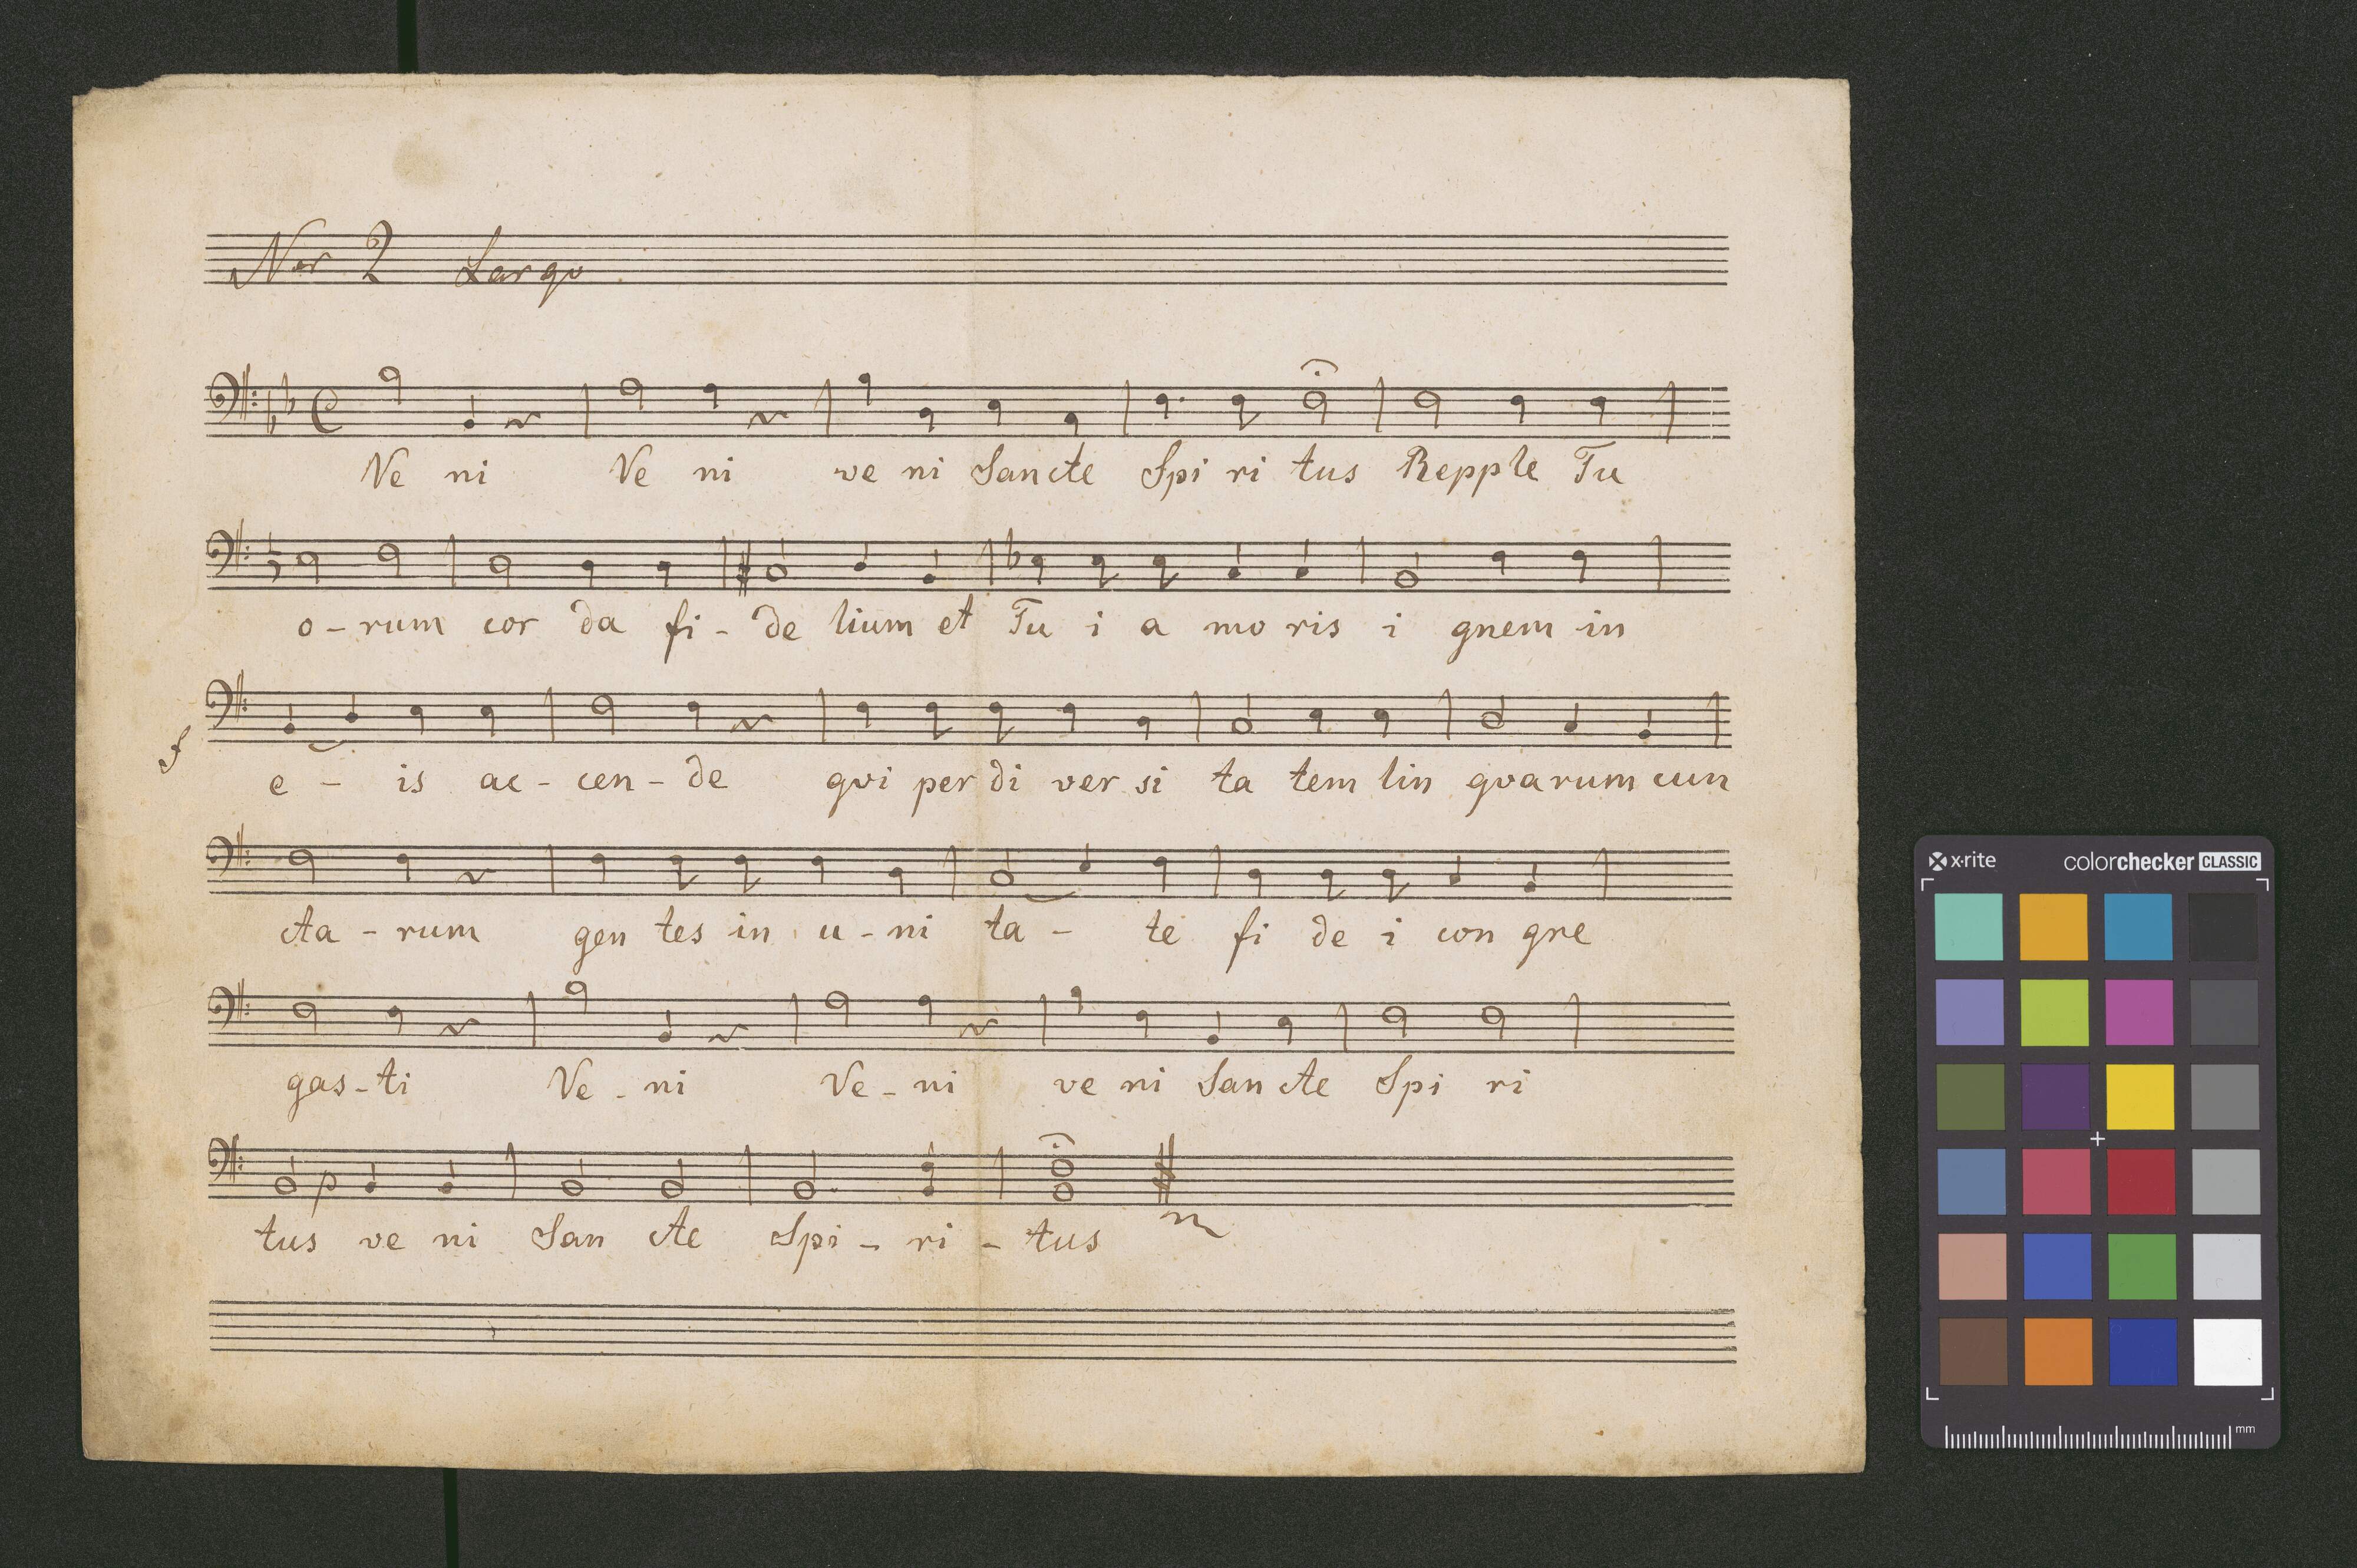 Nor 2 Largo
Ve ni Ve ni ve ni Sancte Spi ri tus Repple Tu
o - rum cor da fi - de lium et Tu i a mo ris i gnem in
f
e - is ac - cen - de qvi per di ver si ta tem lin qvarum cun
cta - rum gen tes in u - ni ta - te fi de i con gre
gas - ti Ve - ni Ve - ni ve ni San cte Spi ri
p
tus ve ni San cte Spi - ri - tus
x·rite colorchecker CLASSIC
mm